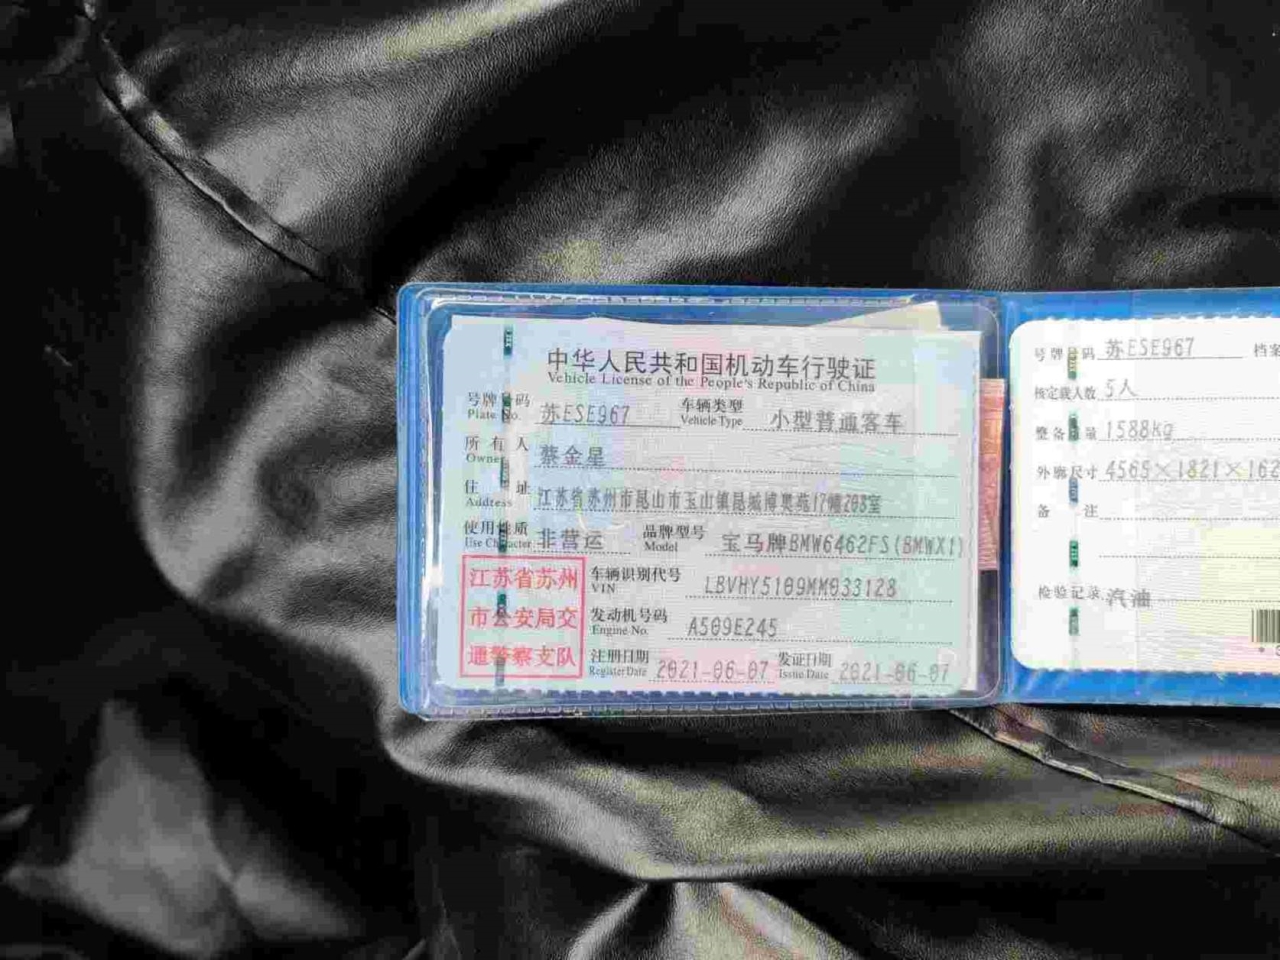 中华人民共和国机动车行驶证
Vehicle License of the People's Republic of China
号牌号码 苏ESE967 车辆类型 小型普通客车
Plate No. Vehicle Type
所有人 蔡金星
Owner
住址 江苏省苏州市昆山市玉山镇昆城博奥苑17幢203室
Address
使用性质 非营运 品牌型号 宝马牌BMW6462FS(BMWX1)
Use Character Model
江苏省苏州
市公安局交
通警察支队
车辆识别代号 LBVHY5109MM033128
VIN
发动机号码 A509E245
Engine No.
注册日期 2021-06-07 发证日期 2021-06-07
Register Date Issue Date
号牌号码 苏ESE967 档案
核定载人数 5人
整备质量 1588kg
外廓尺寸 4565×1821×162
备注
检验记录 汽油